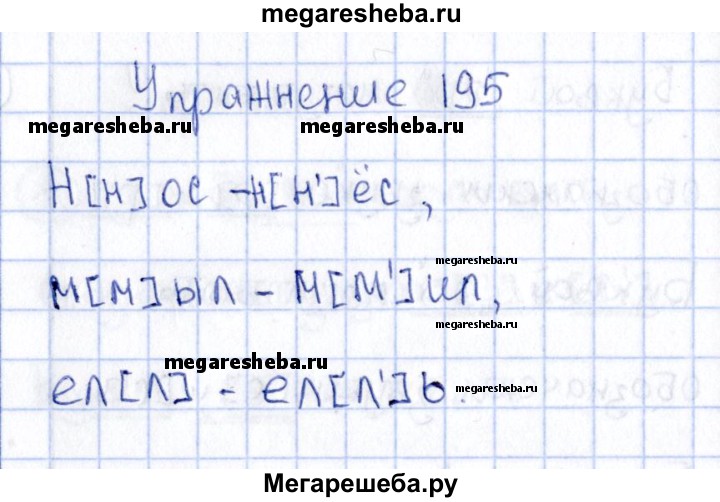 megaresheba.ru
Упражнение 195
megaresheba.ru megaresheba.ru
Н[н]ос - н[н']ёс,
megaresheba.ru
м[м]ыл - м[м']ил,
megaresheba.ru
megaresheba.ru
ел[л] - ел[л']ь.
megaresheba.ru
Мегарешеба.ру